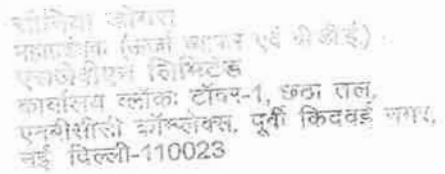 सोनिया डोगरा
महाप्रबंधक (ऊर्जा व्यापार एवं बी.डी.ई.)
एसजेवीएन लिमिटेड
कार्यालय ब्लॉकः टॉवर-1, छठा तल,
एनबीसीसी कॉम्प्लेक्स, पूर्वी किदवई नगर,
नई दिल्ली-110023